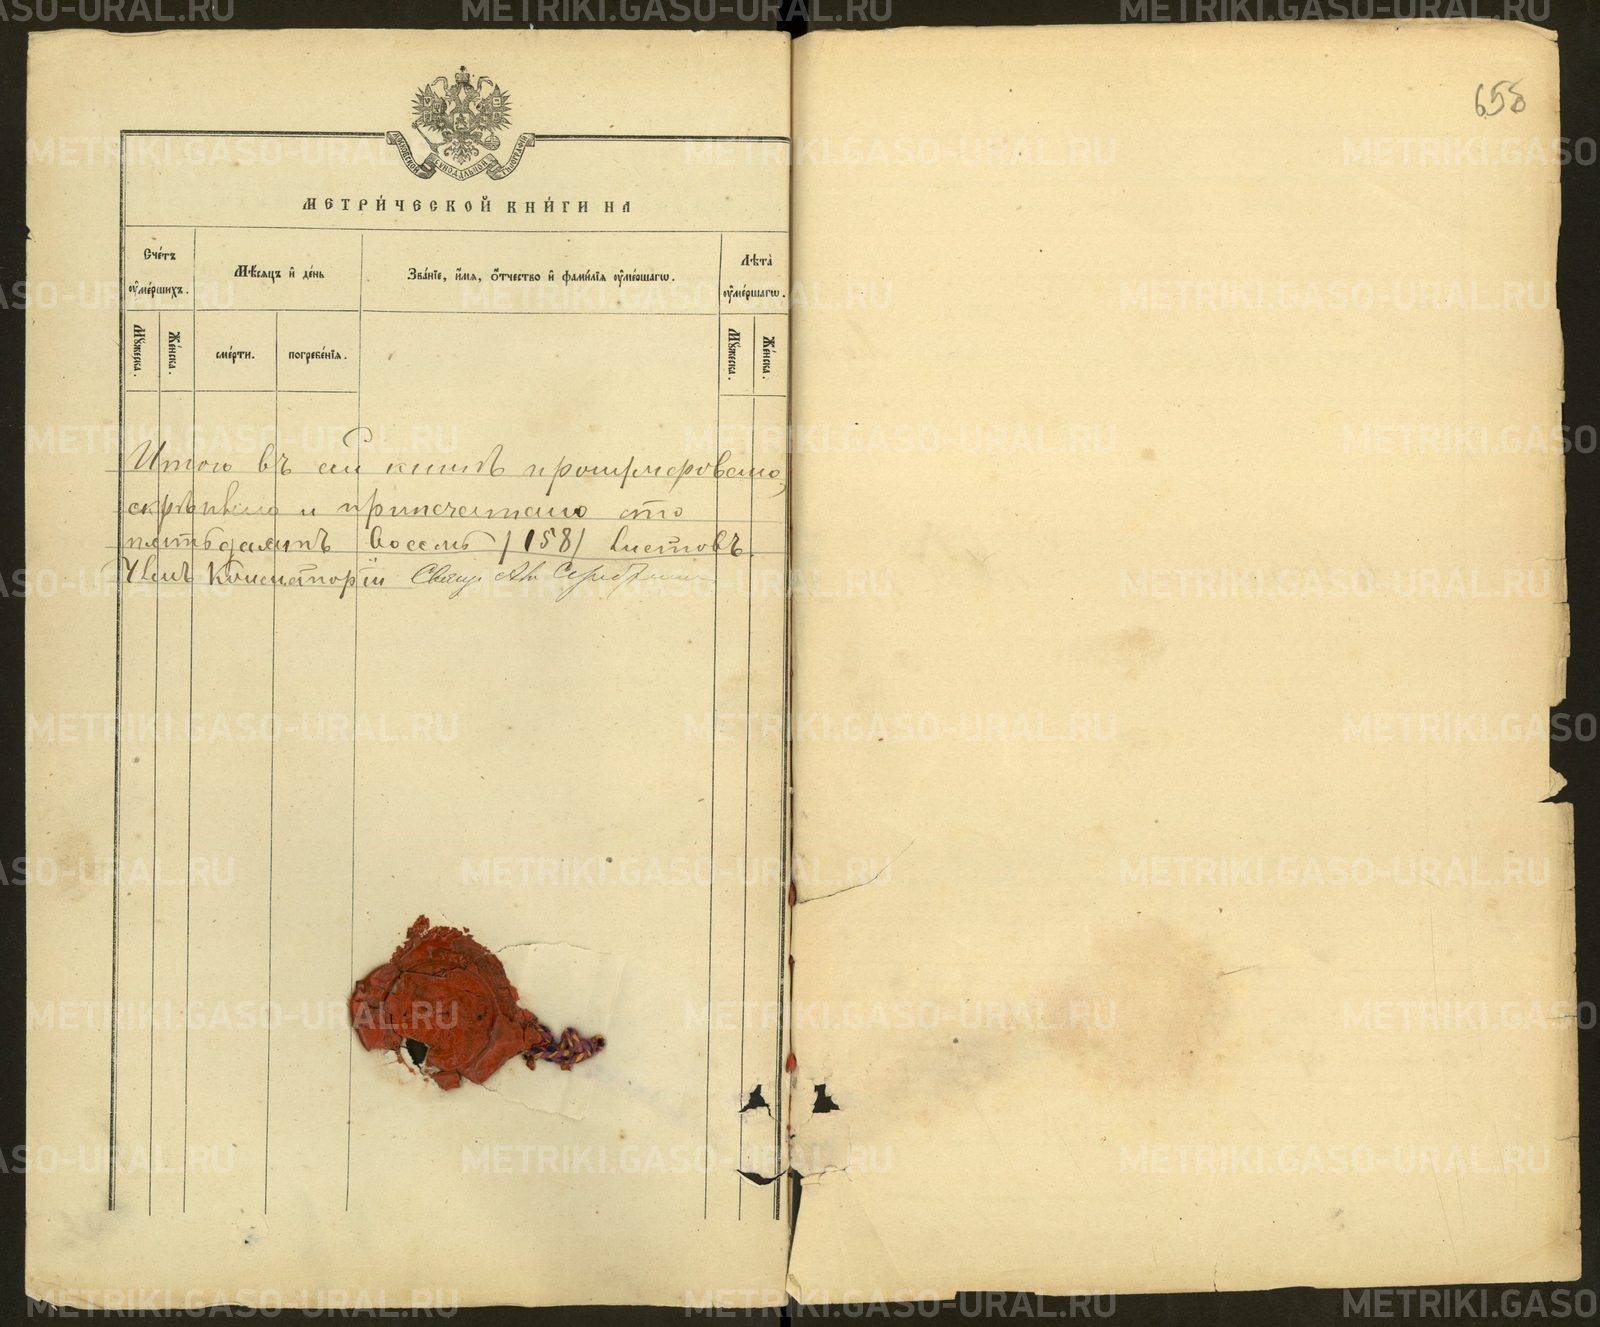 658
МОСКОВСКОЙ СѴНОДАЛЬНОЙ ТѴПОГРАФІИ
МЕТРИ́ЧЕСКОЙ КНИ́ГИ НА
Сче́тъ ᲂу҆ме́ршихъ.
Мѣ́сяцъ и҆ де́нь
Зва́нїе, и҆́мя, ѻ҆́тчество и҆ фами́лїя ᲂу҆ме́ршагѡ.
Лѣта̀ ᲂу҆ме́ршагѡ.
Мꙋ́жеска.
Же́нска.
сме́рти.
погребе́нїя.
Мꙋ́жеска.
Же́нска.
Итого въ сей книгѣ прошнуровано,
скрѣплено и припечатано сто
пятьдесятъ восемь /158/ листовъ.
Членъ Консисторіи Свящ.
METRIKI.GASO-URAL.RU